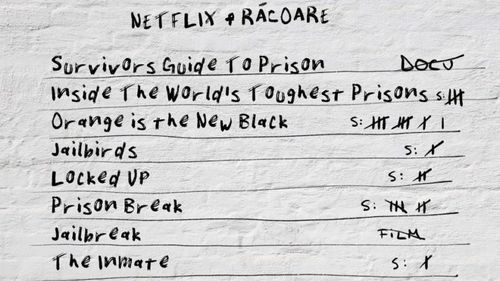 NETFLIX & RĂCOARE
Survivors Guide To Prison DOCU
Inside The World's Toughest Prisons S:
Orange is the New Black S:
Jailbirds S:
Locked Up S:
Prison Break S:
Jailbreak FILM
The Inmate S: